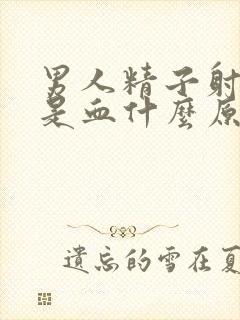 男人精子射
是血什麼原
遺忘的雪在夏